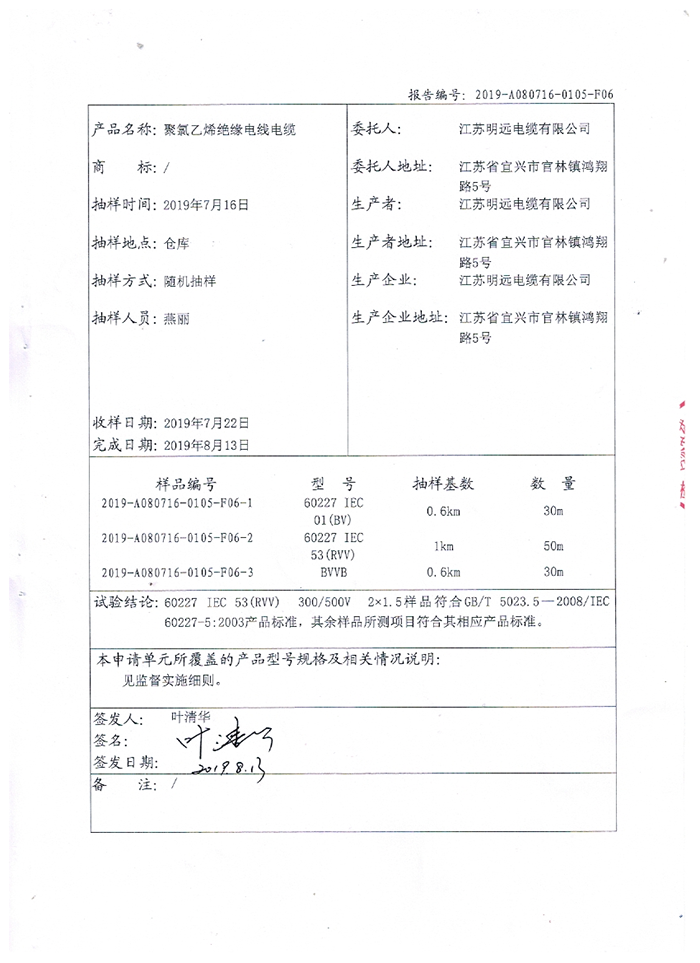 报告编号: 2019-A080716-0105-F06
产品名称: 聚氯乙烯绝缘电线电缆
商 标: /
抽样时间: 2019年7月16日
抽样地点: 仓库
抽样方式: 随机抽样
抽样人员: 燕丽
收样日期: 2019年7月22日
完成日期: 2019年8月13日
委托人: 江苏明远电缆有限公司
委托人地址: 江苏省宜兴市官林镇鸿翔
路5号
生产者: 江苏明远电缆有限公司
生产者地址: 江苏省宜兴市官林镇鸿翔
路5号
生产企业: 江苏明远电缆有限公司
生产企业地址: 江苏省宜兴市官林镇鸿翔
路5号
样品编号 型 号 抽样基数 数 量
2019-A080716-0105-F06-1 60227 IEC 0.6km 30m
01(BV)
2019-A080716-0105-F06-2 60227 IEC 1km 50m
53(RVV)
2019-A080716-0105-F06-3 BVVB 0.6km 30m
试验结论: 60227 IEC 53(RVV) 300/500V 2×1.5样品符合GB/T 5023.5—2008/IEC
60227-5:2003产品标准，其余样品所测项目符合其相应产品标准。
本申请单元所覆盖的产品型号规格及相关情况说明:
见监督实施细则。
签发人: 叶清华
签名: 叶清华
签发日期: 2019.8.13
备 注: /